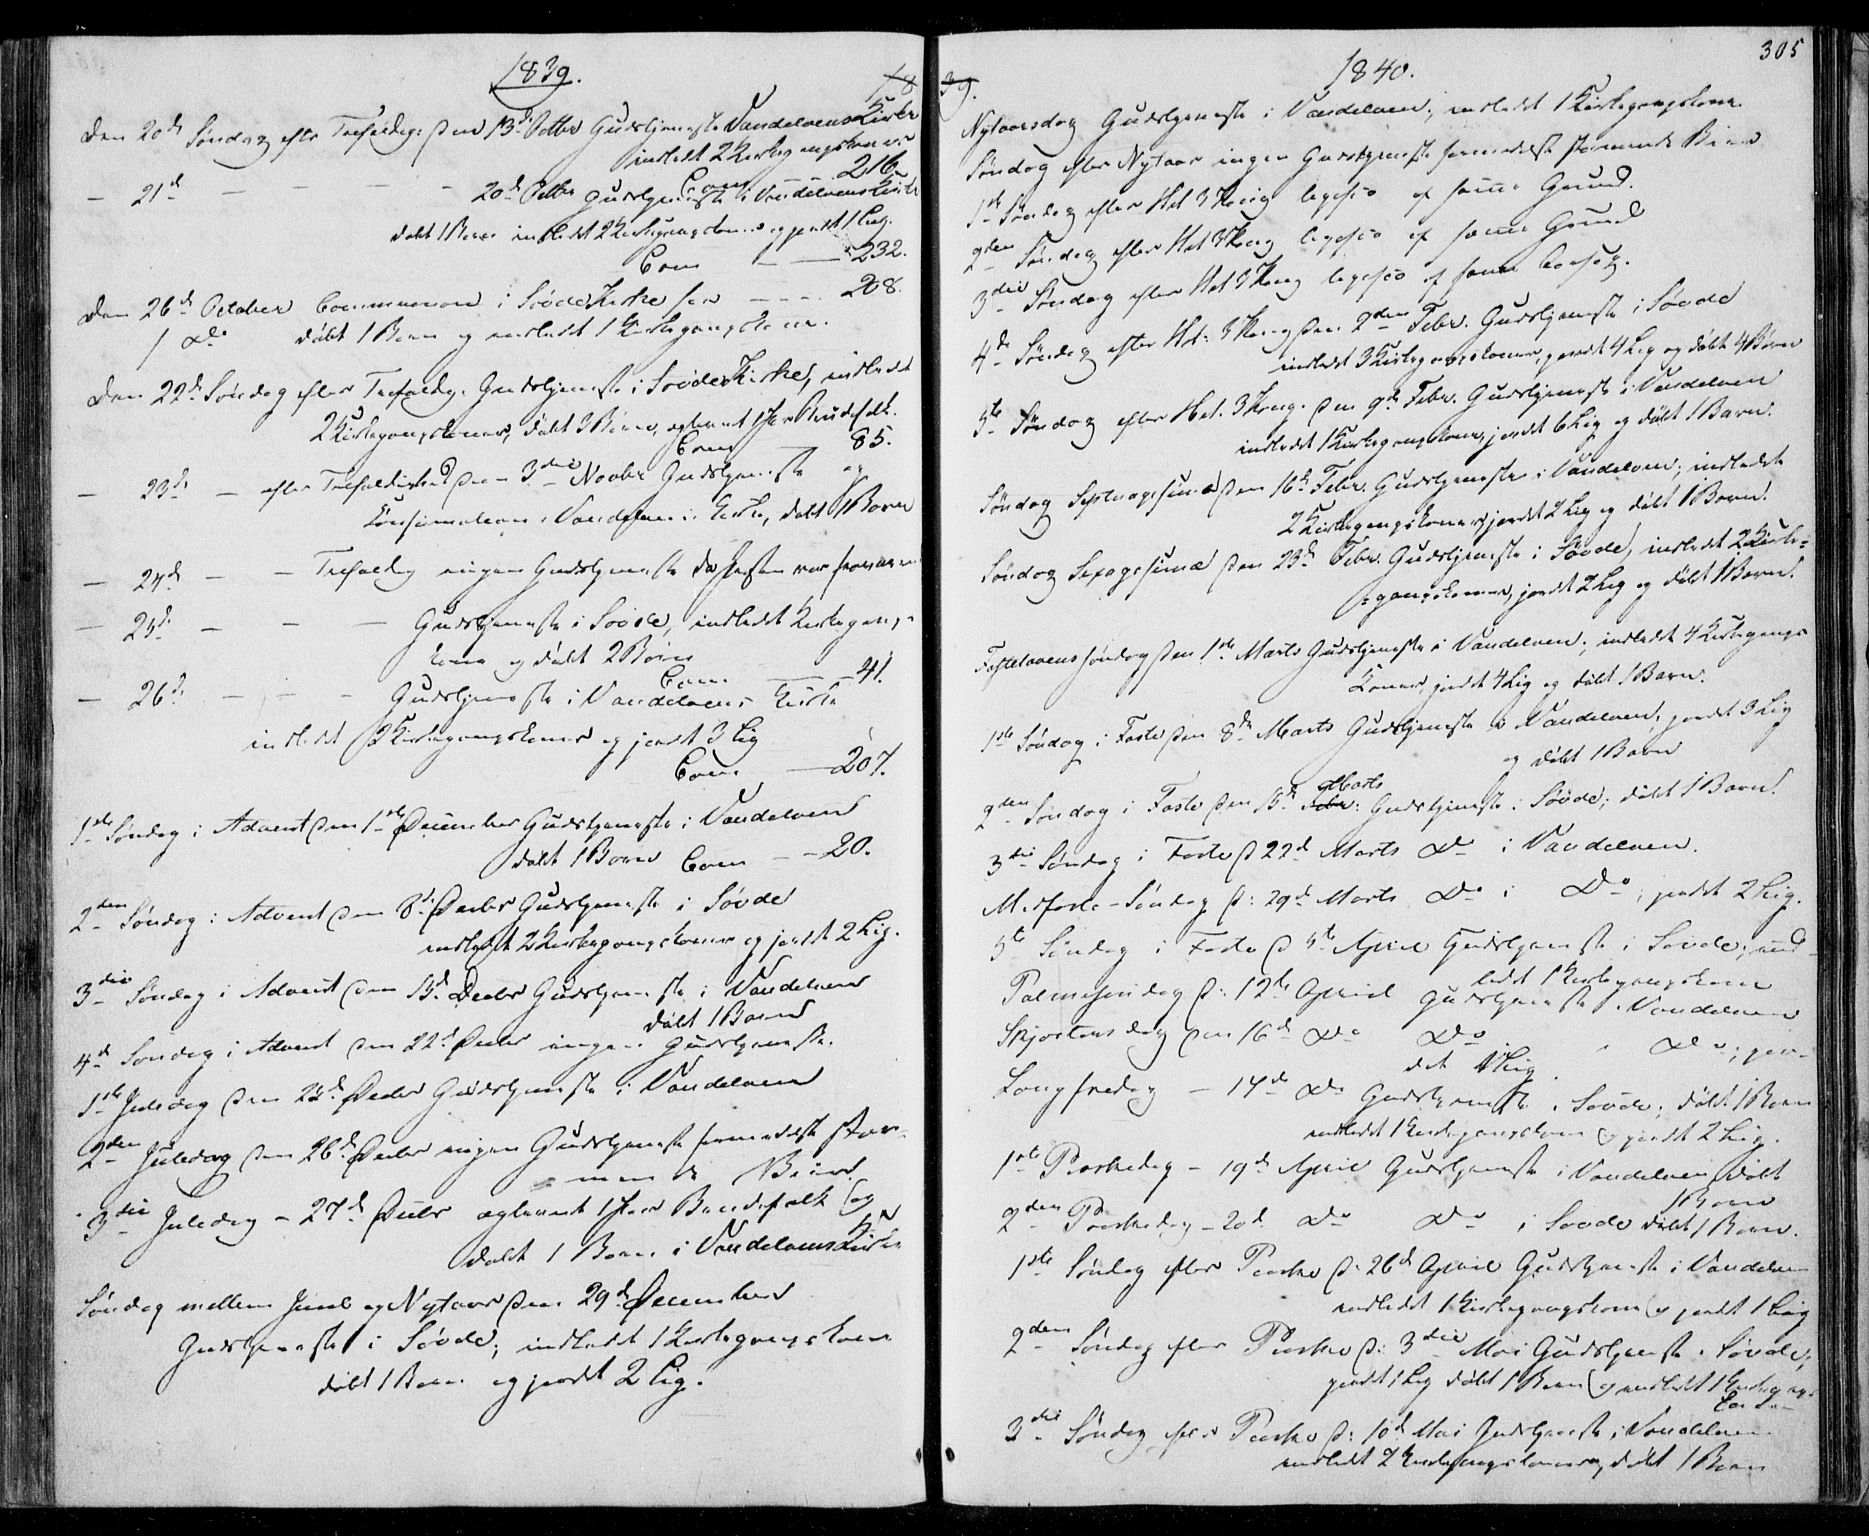 1839.
18
Den 20de Søndag efter Trefoldigh: den 13de Octbr Gudstjeneste Vandelvens Kirke
indledt 2 Kirkegangskoner
Com — — 216
— 21de — — — — 20de Octbr Gudstjeneste i Vandelvens Kirke
døbt 1 Barn indledt 2 Kirkegangskoner og jordet 1 Lig.
Com — — 232.
Den 26de October Communion i Søvde Kirke for — — — 208.
døbt 1 Barn og indledt 1 Kirkegangskone.
Den 22de Søndag efter Trefoldigh. Gudstjeneste i Søvde Kirke, indledt
2 Kirkegangskoner, døbt 3 Børn, og 1 Par Brudefolk.
Com 85.
— 23de — efter Trefoldighed den 3die Novbr Gudstjeneste og
Confirmation i Vandelvens Kirke, døbt 1 Barn
— 24de — — Trefoldigh ingen Gudstjeneste da Præsten var
— 25de — — — Gudstjeneste i Søvde, indledt Kirkegangs-
kone og døbt 2 Børn
Com — — 41.
— 26de — — — Gudstjeneste i Vandelvens Kirke
indledt 2 Kirkegangskoner og jordet 3 Lig
Com — 207.
1ste Søndag i Advent den 1ste December Gudstjeneste i Vandelven
døbt 1 Barn Com — — 20.
2den Søndag i Advent den 8de Decbr Gudstjeneste i Søvde
indledt 2 Kirkegangskoner og jordet 2 Lig.
3die Søndag i Advent den 15de Decbr Gudstjeneste i Vandelven
døbt 1 Barn
4de Søndag i Advent den 22de Decbr ingen Gudstjeneste.
1ste Juledag den 25de Decbr Gudstjeneste i Vandelven
2den Juledag den 26de Decbr ingen Gudstjeneste formedelst
3die Juledag — 27de Decbr 1 Par Brudefolk og
døbt 1 Barn i Vandelvens Kirke
Søndag mellem Juul og Nytaar den 29de December
Gudstjeneste i Søvde, indledt 1 Kirkegangskone
døbt 1 Barn og jordet 2 Lig.
39.
1840.
305
Nytaarsdag Gudstjeneste i Vandelven, indledt 1 Kirkegangskone
Søndag efter Nytaar ingen Gudstjeneste formedelst
1ste Søndag efter Hel 3 Kong ligesaa af samme Grund.
2den Søndag efter Hel 3 Kong ligesaa af samme Grund
3die Søndag efter Hel 3 Kong ligesaa af samme Aarsag.
4de Søndag efter Hel: 3 Kong den 2den Febr. Gudstjeneste i Søvde
indledt 3 Kirkegangskoner, jordet 4 Lig og døbt 4 Børn
5te Søndag efter Hel. 3 Kong. den 9de Febr. Gudstjeneste i Vandelven
indledt 1 Kirkegangskone, jordet 6 Lig og døbt 1 Barn.
Søndag Septuagesima den 16de Febr. Gudstjeneste i Vandelven; indledt
2 Kirkegangskoner, jordet 2 Lig og døbt 1 Barn.
Søndag Sexagesima den 23de Febr. Gudstjeneste i Søvde, indledt 2 Kirke=
=gangskoner, jordet 2 Lig og døbt 1 Barn.
Fastelavenssøndag den 1ste Marts Gudstjeneste i Vandelven; indledt 4 Kirkegangs-
Koner, jordet 4 Lig og døbt 1 Barn.
1ste Søndag i Faste den 8de Marts Gudstjeneste i Vandelven, jordet 3 Lig
og døbt 1 Barn
Marts
2den Søndag i Faste den 15de Febr: Gudstjeneste i Søvde; døbt 1 Barn.
3die Søndag i Faste d 22de Marts Do i Vandelven.
Midfaste-Søndag d: 29de Marts Do i Do; jordet 2 Lig.
5te Søndag i Faste d 5te April Gudstjeneste i Søvde; ind-
ledt 1 Kirkegangskone
Palmesøndag d: 12te April Gudstjeneste i Vandelven
Skjærtorsdag den 16de Do Do Do; jor-
det 1 Lig
Langfredag — 17de Do Gudstjeneste i Søvde; døbt 1 Barn
indledt 1 Kirkegangskone og jordet 2 Lig.
1ste Paaskedag — 19de April Gudstjeneste i Vandelven døbt
1 Barn
2den Paaskedag — 20de Do Do i Søvde døbt 1 Barn.
1ste Søndag efter Paaske d: 26de April Gudstjeneste i Vandelven
indledt 1 Kirkegangskone og jordet 1 Lig
2den Søndag efter Paaske d: 3die Mai Gudstjeneste i Søvde;
jordet 1 Lig døbt 1 Barn og indledt 1 Kirkegangs-
kone
3die Søndag efter Paaske d: 10de Mai Gudstjeneste i Vandelven
indledt 2 Kirkegangskoner, døbt 1 Barn